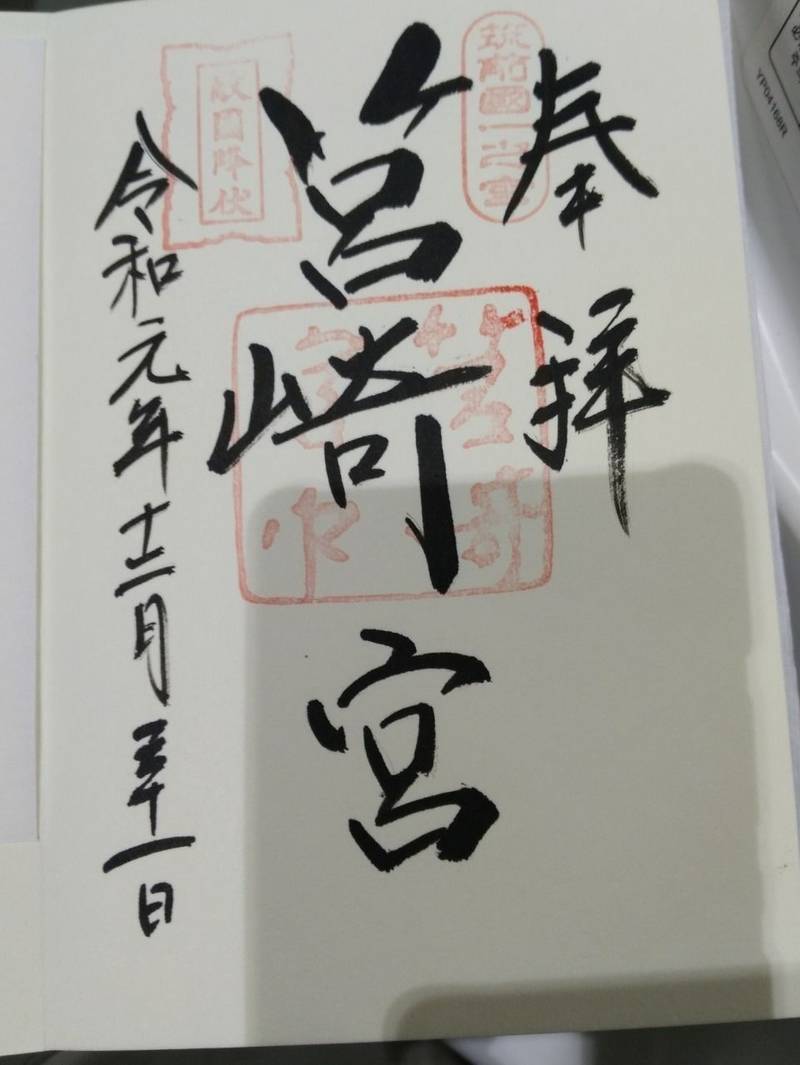 奉拝
筑前國一之宮
筥崎宮
敵國降伏
令和元年十二月三十一日
YP04168R